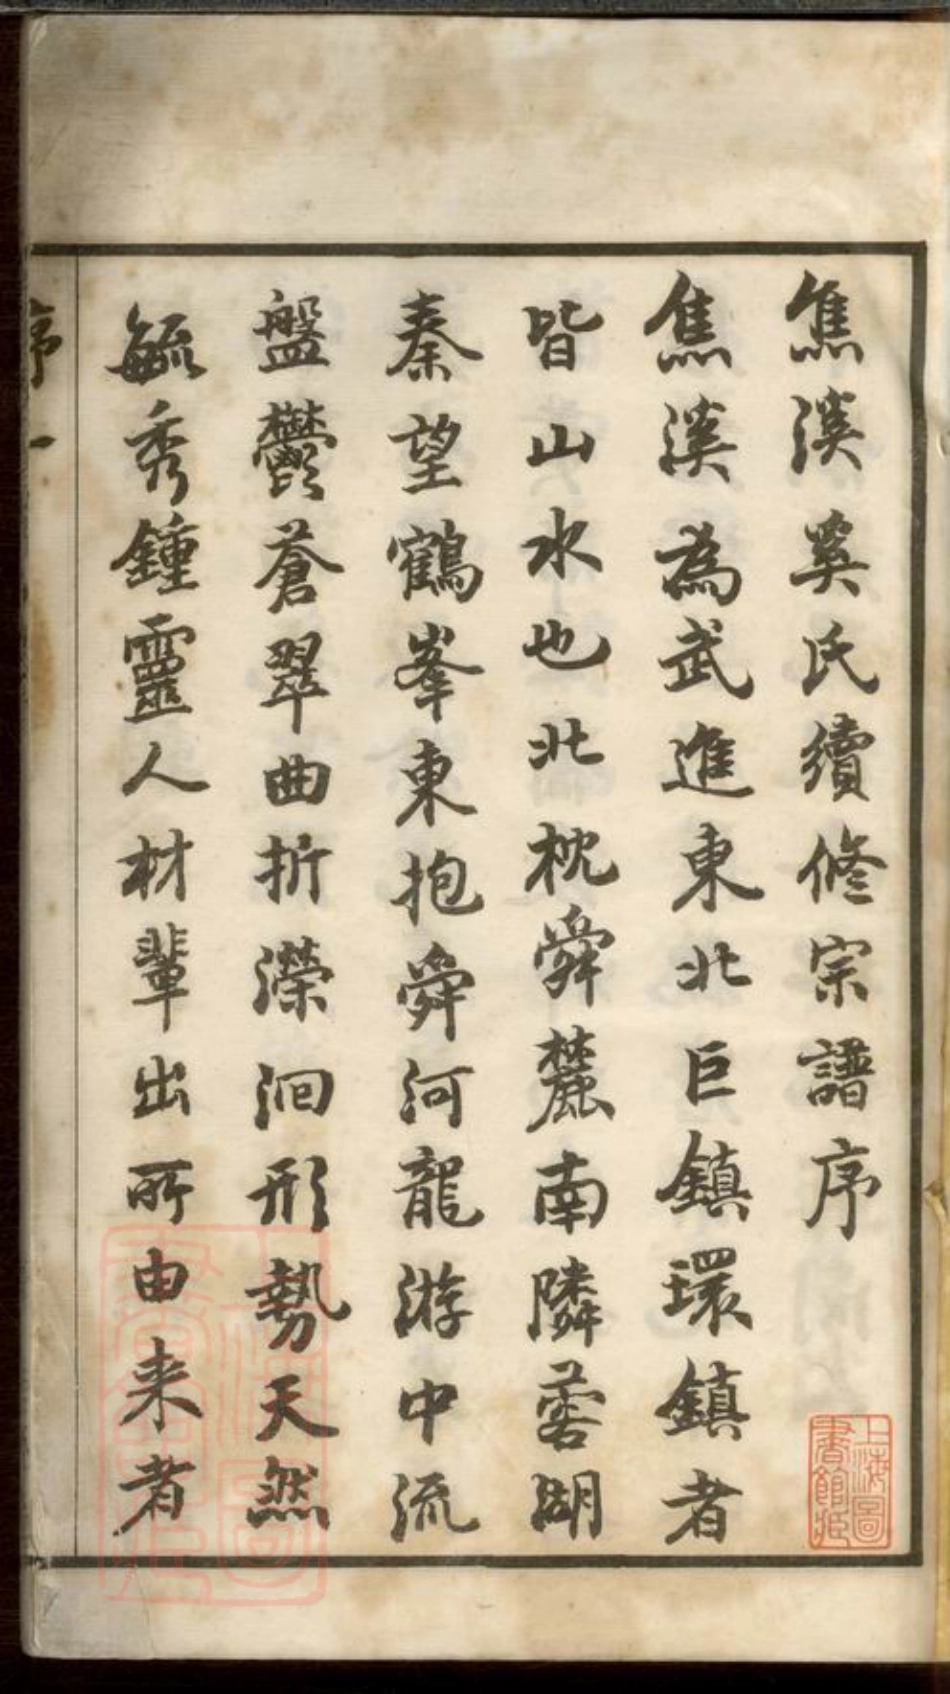 焦溪奚氏續修宗譜序
焦溪為武進東北巨鎮環鎮者
皆山水也北枕舜麓南隣蓉湖
秦望鶴峯東抱舜河龍游中流
盤鬱蒼翠曲折濴洄形勢天然
毓秀鍾靈人材輩出所由来者
序一
上海圖書館藏
上海圖書館藏